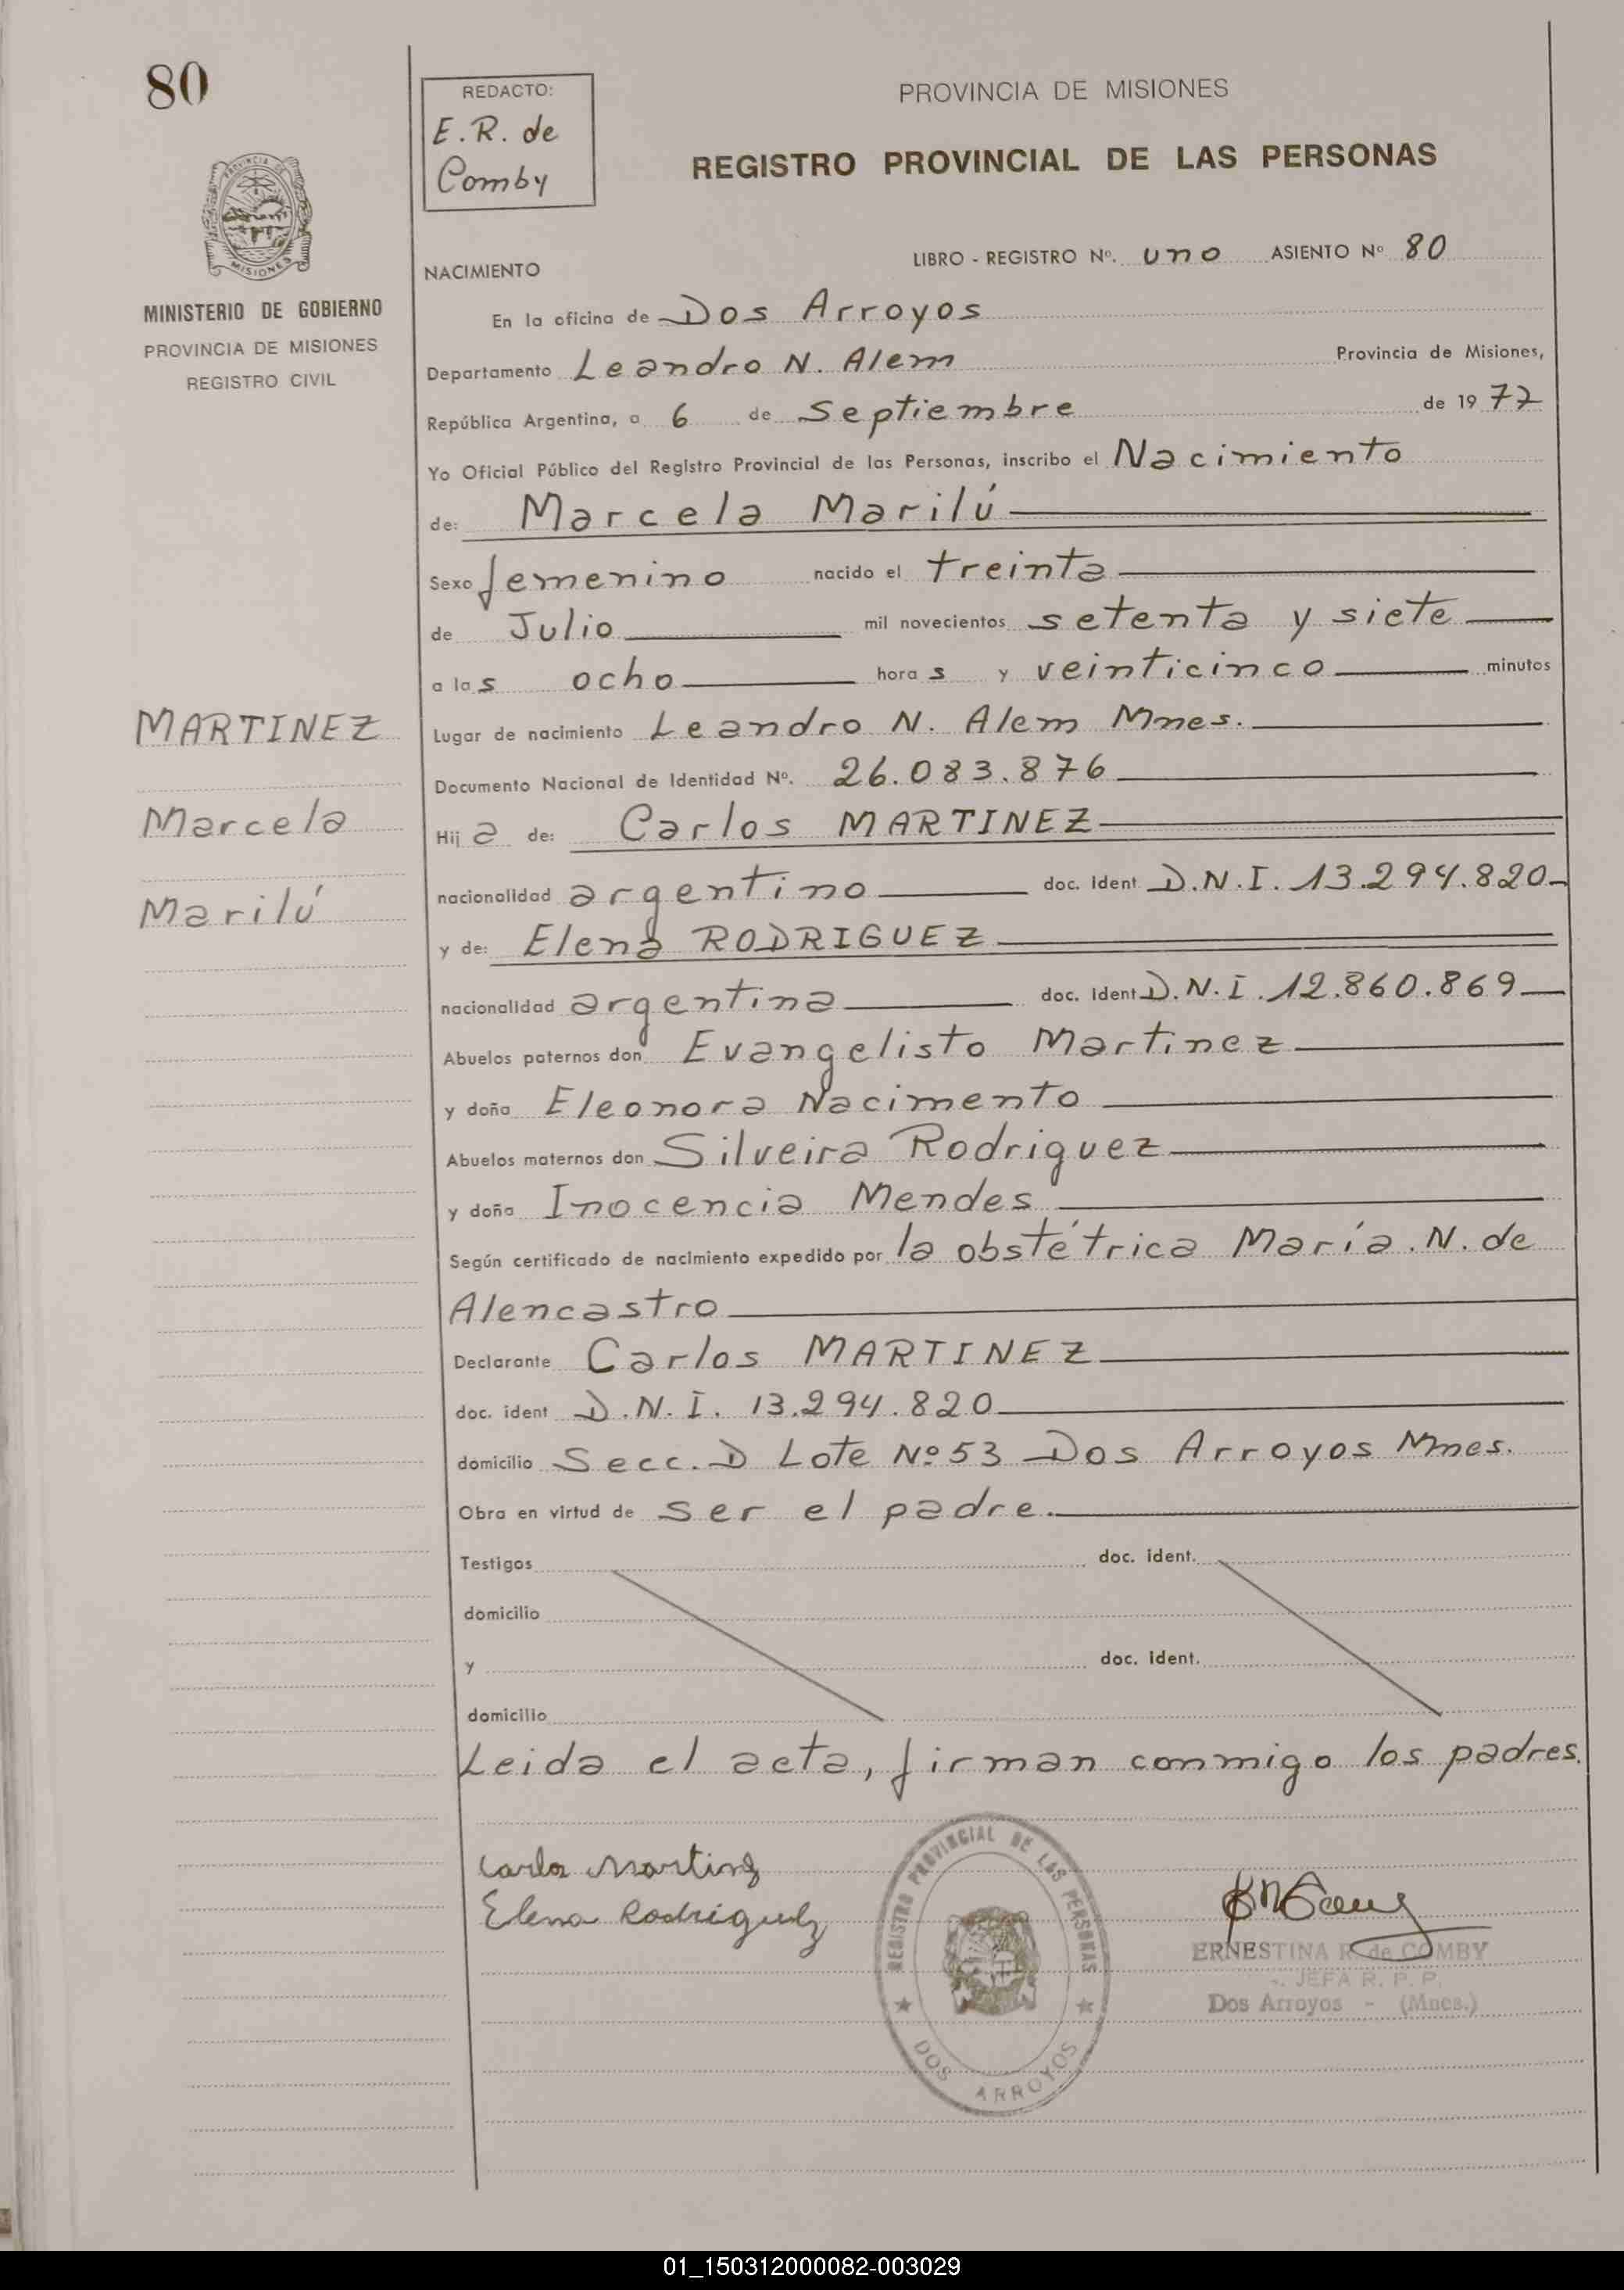 80
PROVINCIA DE
MISIONES
MINISTERIO DE GOBIERNO
PROVINCIA DE MISIONES
REGISTRO CIVIL
MARTINEZ
Marcela
Marilú
REDACTO:
E. R. de
Comby
PROVINCIA DE MISIONES
REGISTRO PROVINCIAL DE LAS PERSONAS
LIBRO - REGISTRO Nº. uno ASIENTO Nº 80
NACIMIENTO
En la oficina de Dos Arroyos
Departamento Leandro N. Alem Provincia de Misiones,
República Argentina, a 6 de Septiembre de 1977
Yo Oficial Público del Registro Provincial de las Personas, inscribo el Nacimiento
de: Marcela Marilú
Sexo femenino nacido el treinta
de Julio mil novecientos setenta y siete
a las ocho horas y veinticinco minutos
Lugar de nacimiento Leandro N. Alem Mnes.
Documento Nacional de Identidad Nº. 26.083.876
Hija de: Carlos MARTINEZ
nacionalidad argentino doc. ident D.N.I. 13.294.820
y de: Elena RODRIGUEZ
nacionalidad argentina doc. ident D.N.I. 12.860.869
Abuelos paternos don Evangelisto Martinez
y doña Eleonora Nacimento
Abuelos maternos don Silveira Rodriguez
y doña Inocencia Mendes
Según certificado de nacimiento expedido por la obstétrica María. N. de
Alencastro
Declarante Carlos MARTINEZ
doc. ident D.N.I. 13.294.820
domicilio Secc. D Lote Nº 53 Dos Arroyos Mnes.
Obra en virtud de ser el padre.
Testigos doc. ident.
domicilio
y doc. ident.
domicilio
Leida el acta, firman conmigo los padres.
Carlos Martinez
Elena Rodriguez
REGISTRO PROVINCIAL DE LAS PERSONAS
DOS ARROYOS
ERNESTINA R. de COMBY
JEFA R. P. P.
Dos Arroyos - (Mnes.)
01_150312000082-003029